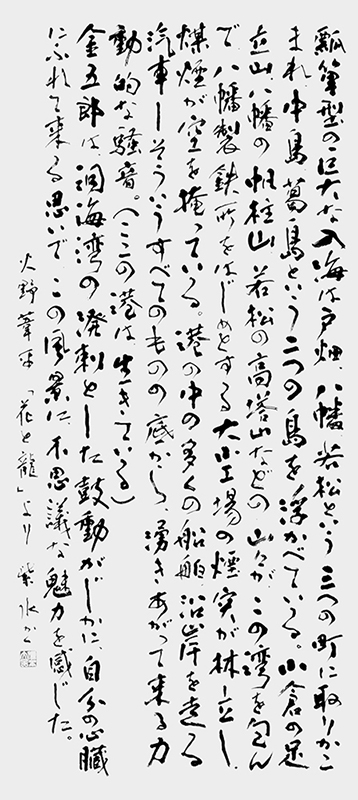 瓢箪型の巨大な入海は戸畑、八幡、若松という三つの町に取りかこ
まれ、中島、葛島という二つの島を浮かべている。小倉の足
立山、八幡の帆柱山、若松の高塔山などの山々が、この湾を包ん
で、八幡製鉄所をはじめとする大工場の煙突が林立し、
煤煙が空を掩っている。港の中の多くの船舶、沿岸を走る
汽車—そういうすべてのものの底から、湧きあがって来る力
動的な騒音。(ここの港は生きている)
金五郎は、洞海湾の溌剌とした鼓動がじかに、自分の心臓
にふれて来る思いで、この風景に不思議な魅力を感じた。
火野葦平「花と龍」より 紫水かく